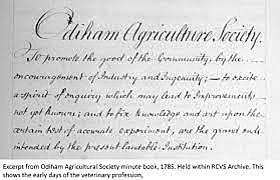 Odiham Agriculture Society.
To promote the good of the Community, by the
encouragement of Industry and Ingenuity; — to excite
a spirit of enquiry which may lead to Improvements
not yet known; and to fix knowledge and art upon the
certain test of accurate experiment, are the grand ends
intended by the present laudable Institution.
Excerpt from Odiham Agricultural Society minute book, 1785. Held within RCVS Archive. This
shows the early days of the veterinary profession,